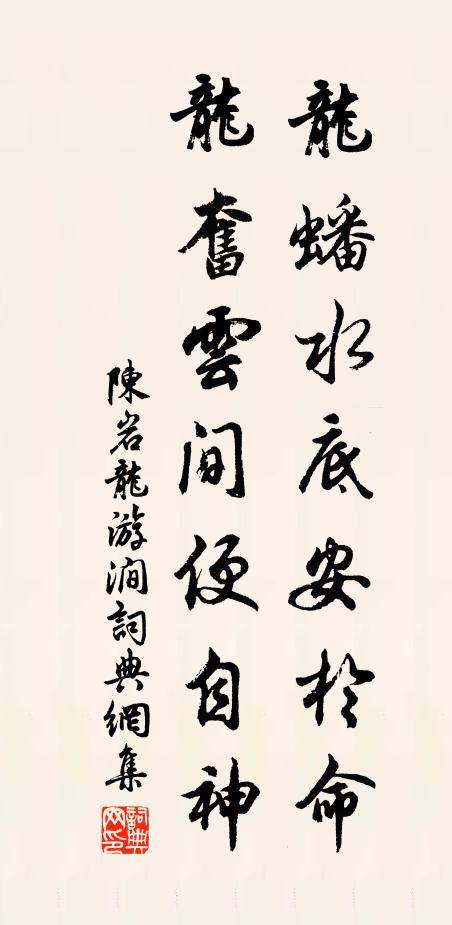 龍蟠水底安於命
龍奮雲間便自神
陳岩龍游澗詞典網集
詞典网印